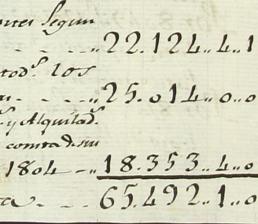 ntes segun
22.124..4..1
tod.^s los
25.014..0..0
y Alquilad.^s
contad.^s en
1804 18.353..4..0
65.492..1..0